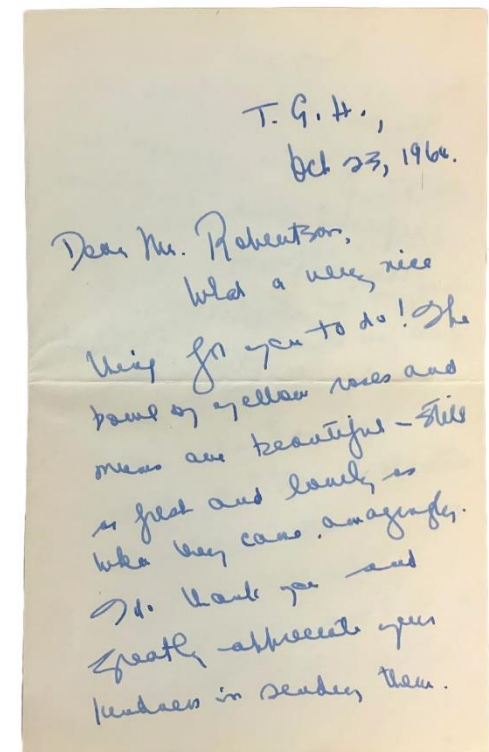 T. G. H.,
Oct 23, 196
Dear Mr. Robertson,
What a very nice
thing for you to do! The
bowl of yellow roses and
mums are beautiful – still
as fresh and lovely as
when they came, amazingly.
I do thank you and
greatly appreciate your
kindness in sending them.